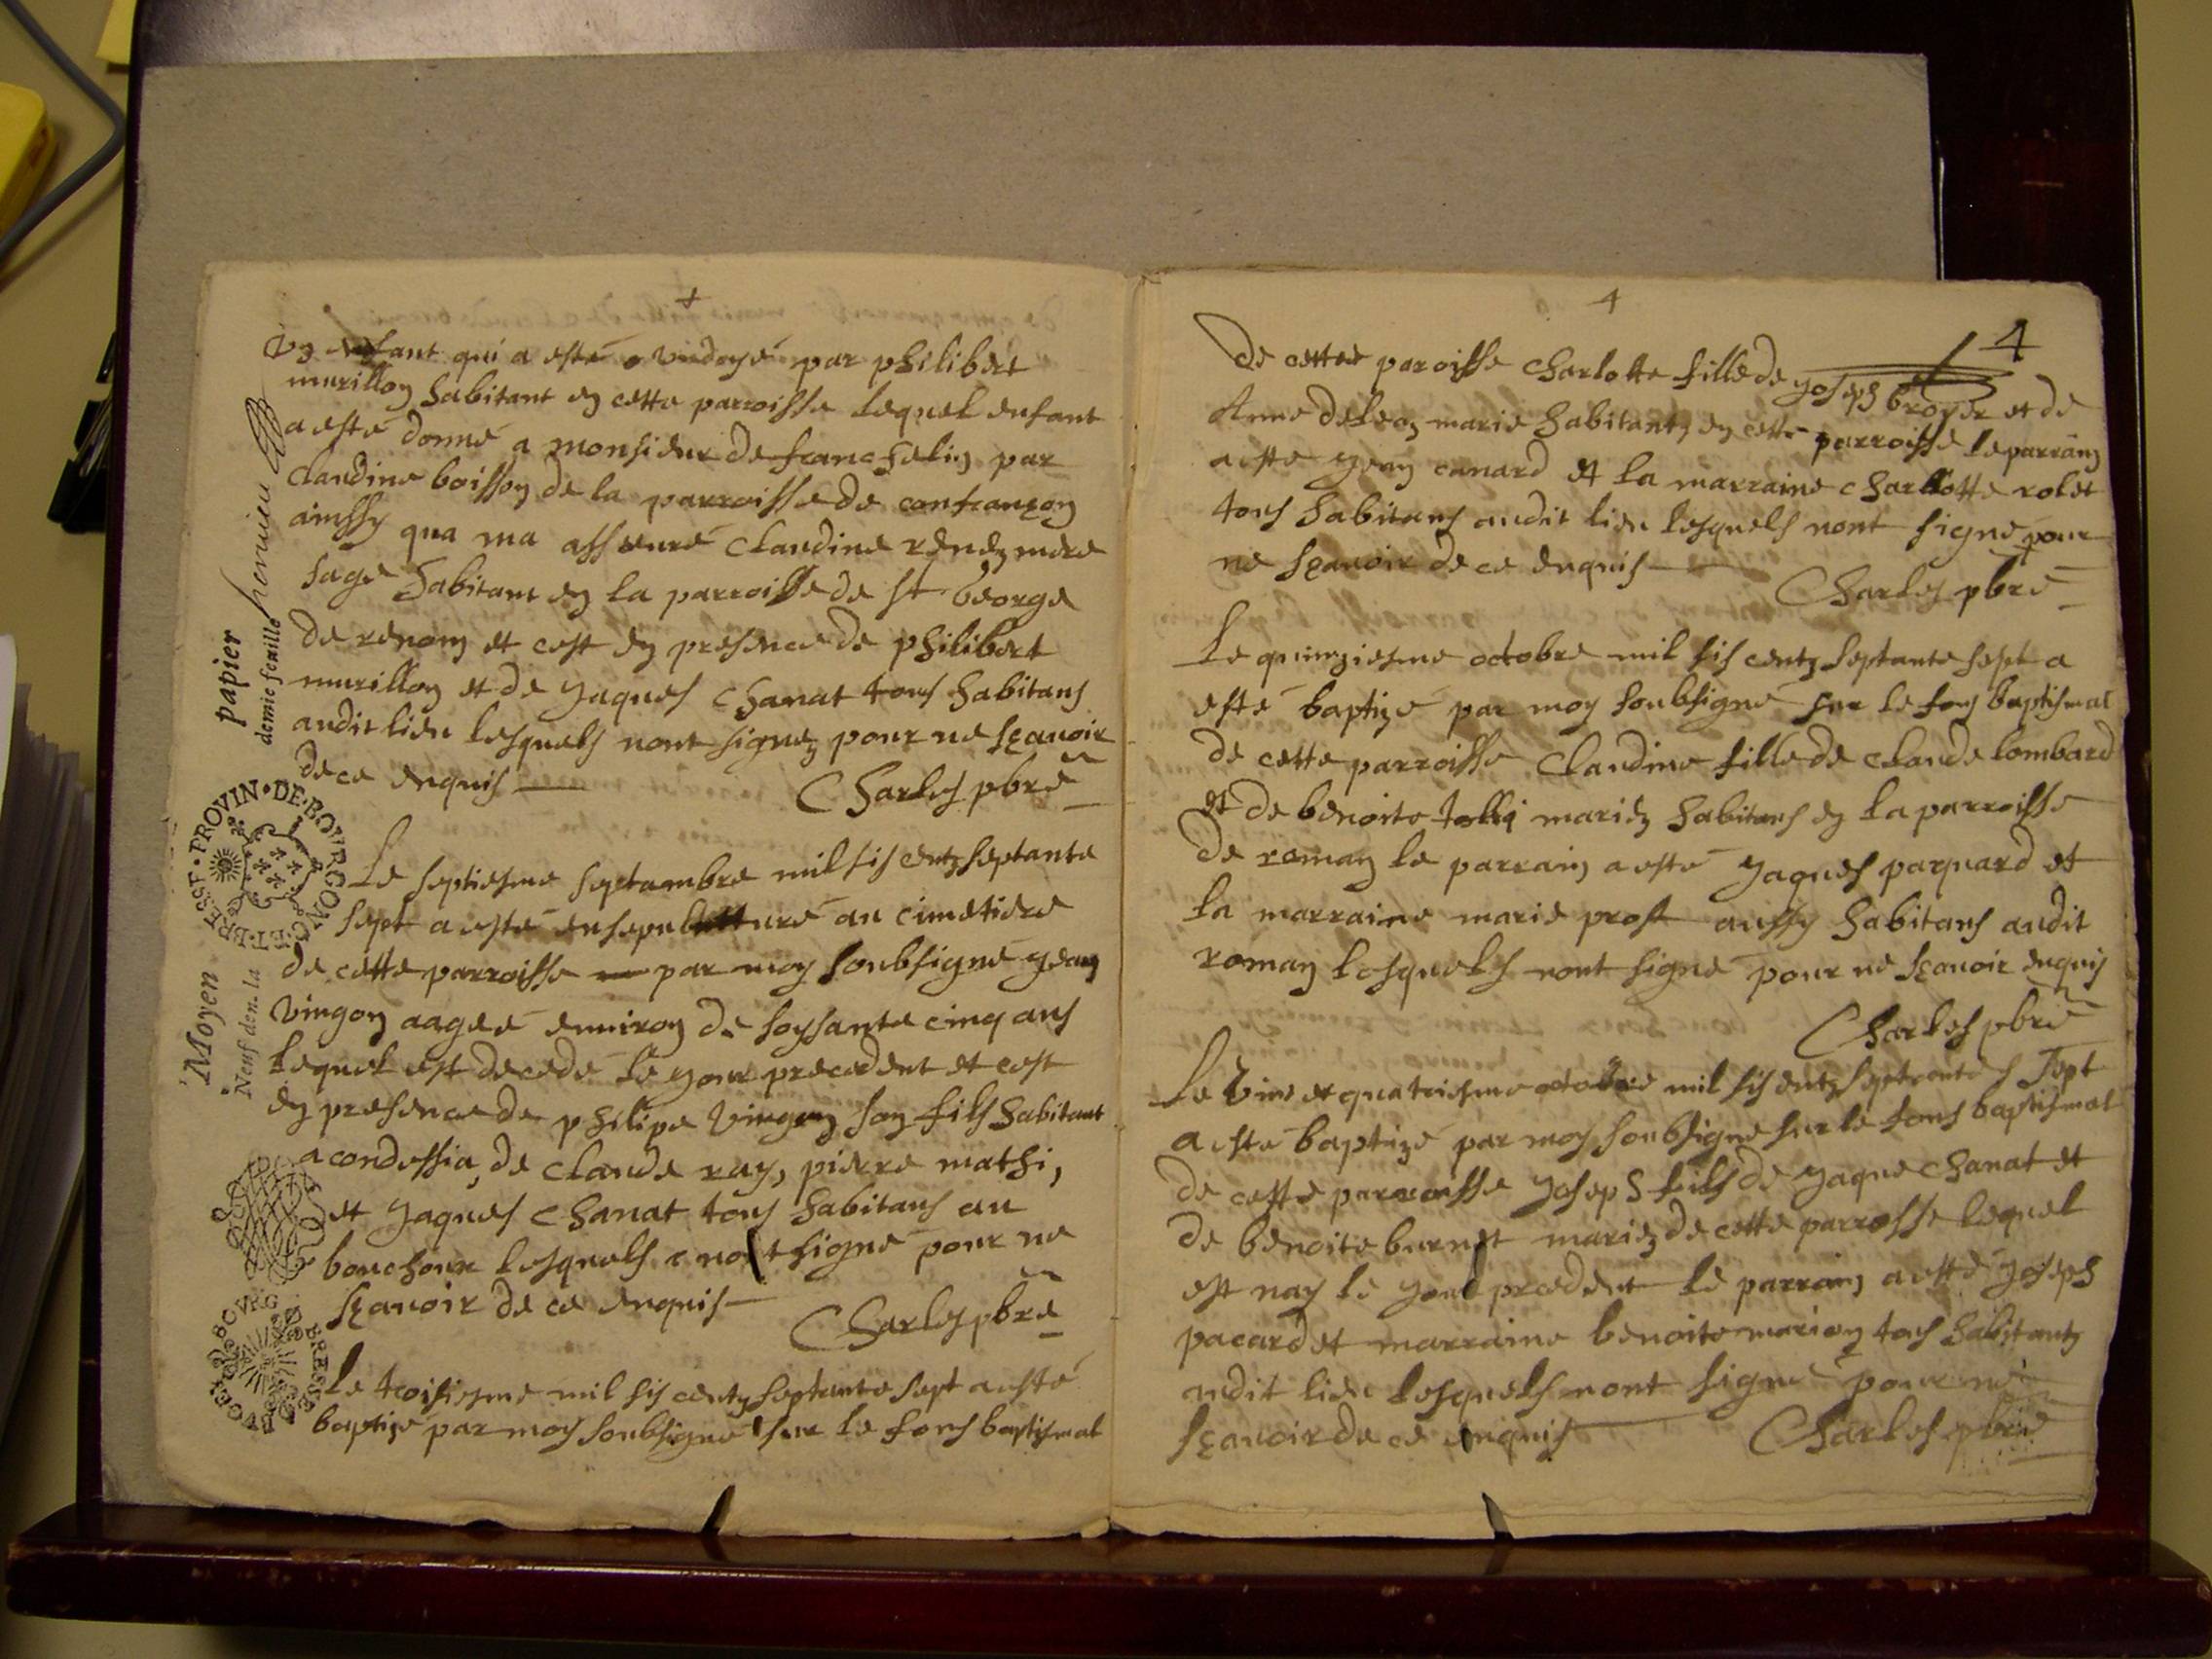 un enfant qui a esté ondoyé par philibert
murillon habitant en cette parroisse lequel enfant
a esté donné a monsieur de francheliny par
claudine boisson de la parroisse de confrançon
ainssy qua ma asseuré claudine mere
sage habitant en la parroisse de st george
de renom et cest en presence de philibert
murillon et de yaques chanat tous habitans
audit lieu lesquels nont signez pour ne sçavoir
de ce enquis
Charles pbre
Le septiesme septambre mil sis centz septante
sept a esté ensepulturé au cimetiere
de cette parroisse par moy soubsigné yean
vingon aagee environ de soysante cinq ans
lequel est decedé le your precedent et cest
en presence de philipe vingon son fils habitant
a condessia, de claude ray, pierre mathi,
et yaques chanat tous habitans au
bouchoux lesquels nont signé pour ne
sçavoir de ce enquis
Charles pbre
Le troisiesme mil sis centz septante sept a esté
baptize par moy soubsigné sur le fons baptismal
papier
demie feuille
Moyen
Neuf den. la
PROVIN · DE · BOURGONG · ET · BRESSE
BOURG BRESSE BUGEY
4
4
De cette paroisse charlotte fille de yoseph broyer et de
Anne deleon marie habitantz en cette parroisse le parrain
a esté yean canard et la marraine charllotte rolet
tous habitans audit lieu lesquels nont signé pour
ne sçavoir de ce enquis
Charles pbre
Le quinziesme octobre mil sis centz septante sept a
esté baptizé par moy soubsigné sur le fons baptismal
de cette parroisse claudine fille de claude lombard
et de benoite mariez habitans en la parroisse
de roman le parrain a esté yaques paquard et
la marraine marie prost aussy habitans audit
roman lesquels nont signé pour ne sçavoir enquis
Charles pbre
Le vint et quatriesme octobre mil sis centz septante sept
a esté baptizé par moy soubsigné sur le fons baptismal
de cette parroisse yoseph fils de yaque chanat et
de benoite burnet mariez de cette parroisse lequel
est nay le your precedent le parrain a esté yoseph
pacard et marraine benoite marion tous habitantz
audit lieu lesquels nont signé pour ne
sçavoir de ce enquis
Charles pbre